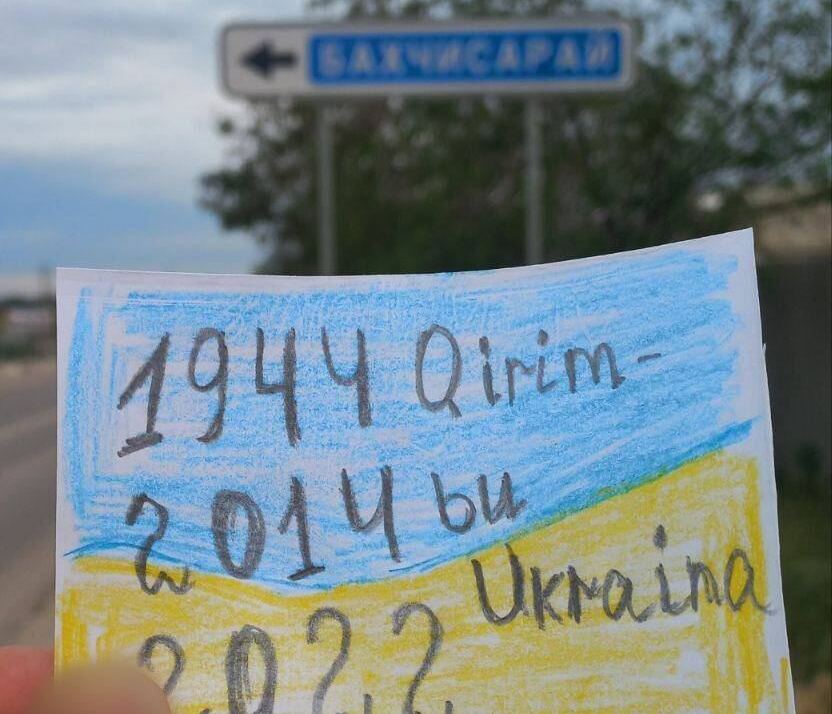 БАХЧИСАРАЙ
1944 Qirim-
2014 bu
Ukraina
2022